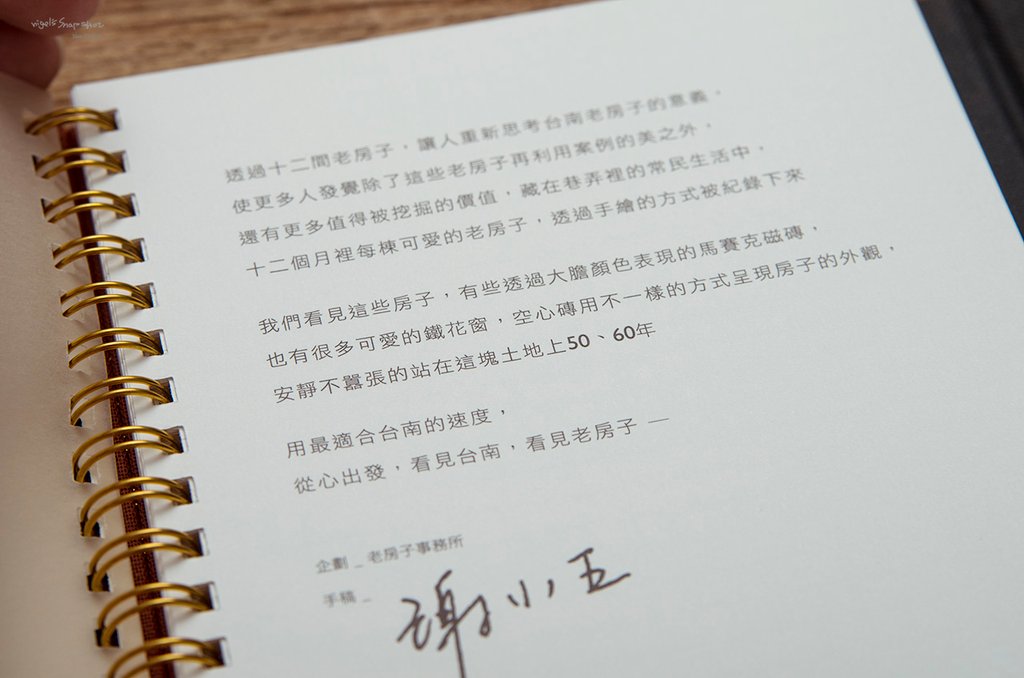 nigel's Snapshot
透過十二間老房子，讓人重新思考台南老房子的意義，
使更多人發覺除了這些老房子再利用案例的美之外，
還有更多值得被挖掘的價值，藏在巷弄裡的常民生活中，
十二個月裡每棟可愛的老房子，透過手繪的方式被紀錄下來
我們看見這些房子，有些透過大膽顏色表現的馬賽克磁磚，
也有很多可愛的鐵花窗，空心磚用不一樣的方式呈現房子的外觀，
安靜不囂張的站在這塊土地上50、60年
用最適合台南的速度，
從心出發，看見台南，看見老房子 —
企劃 _ 老房子事務所
手稿 _ 謝小五